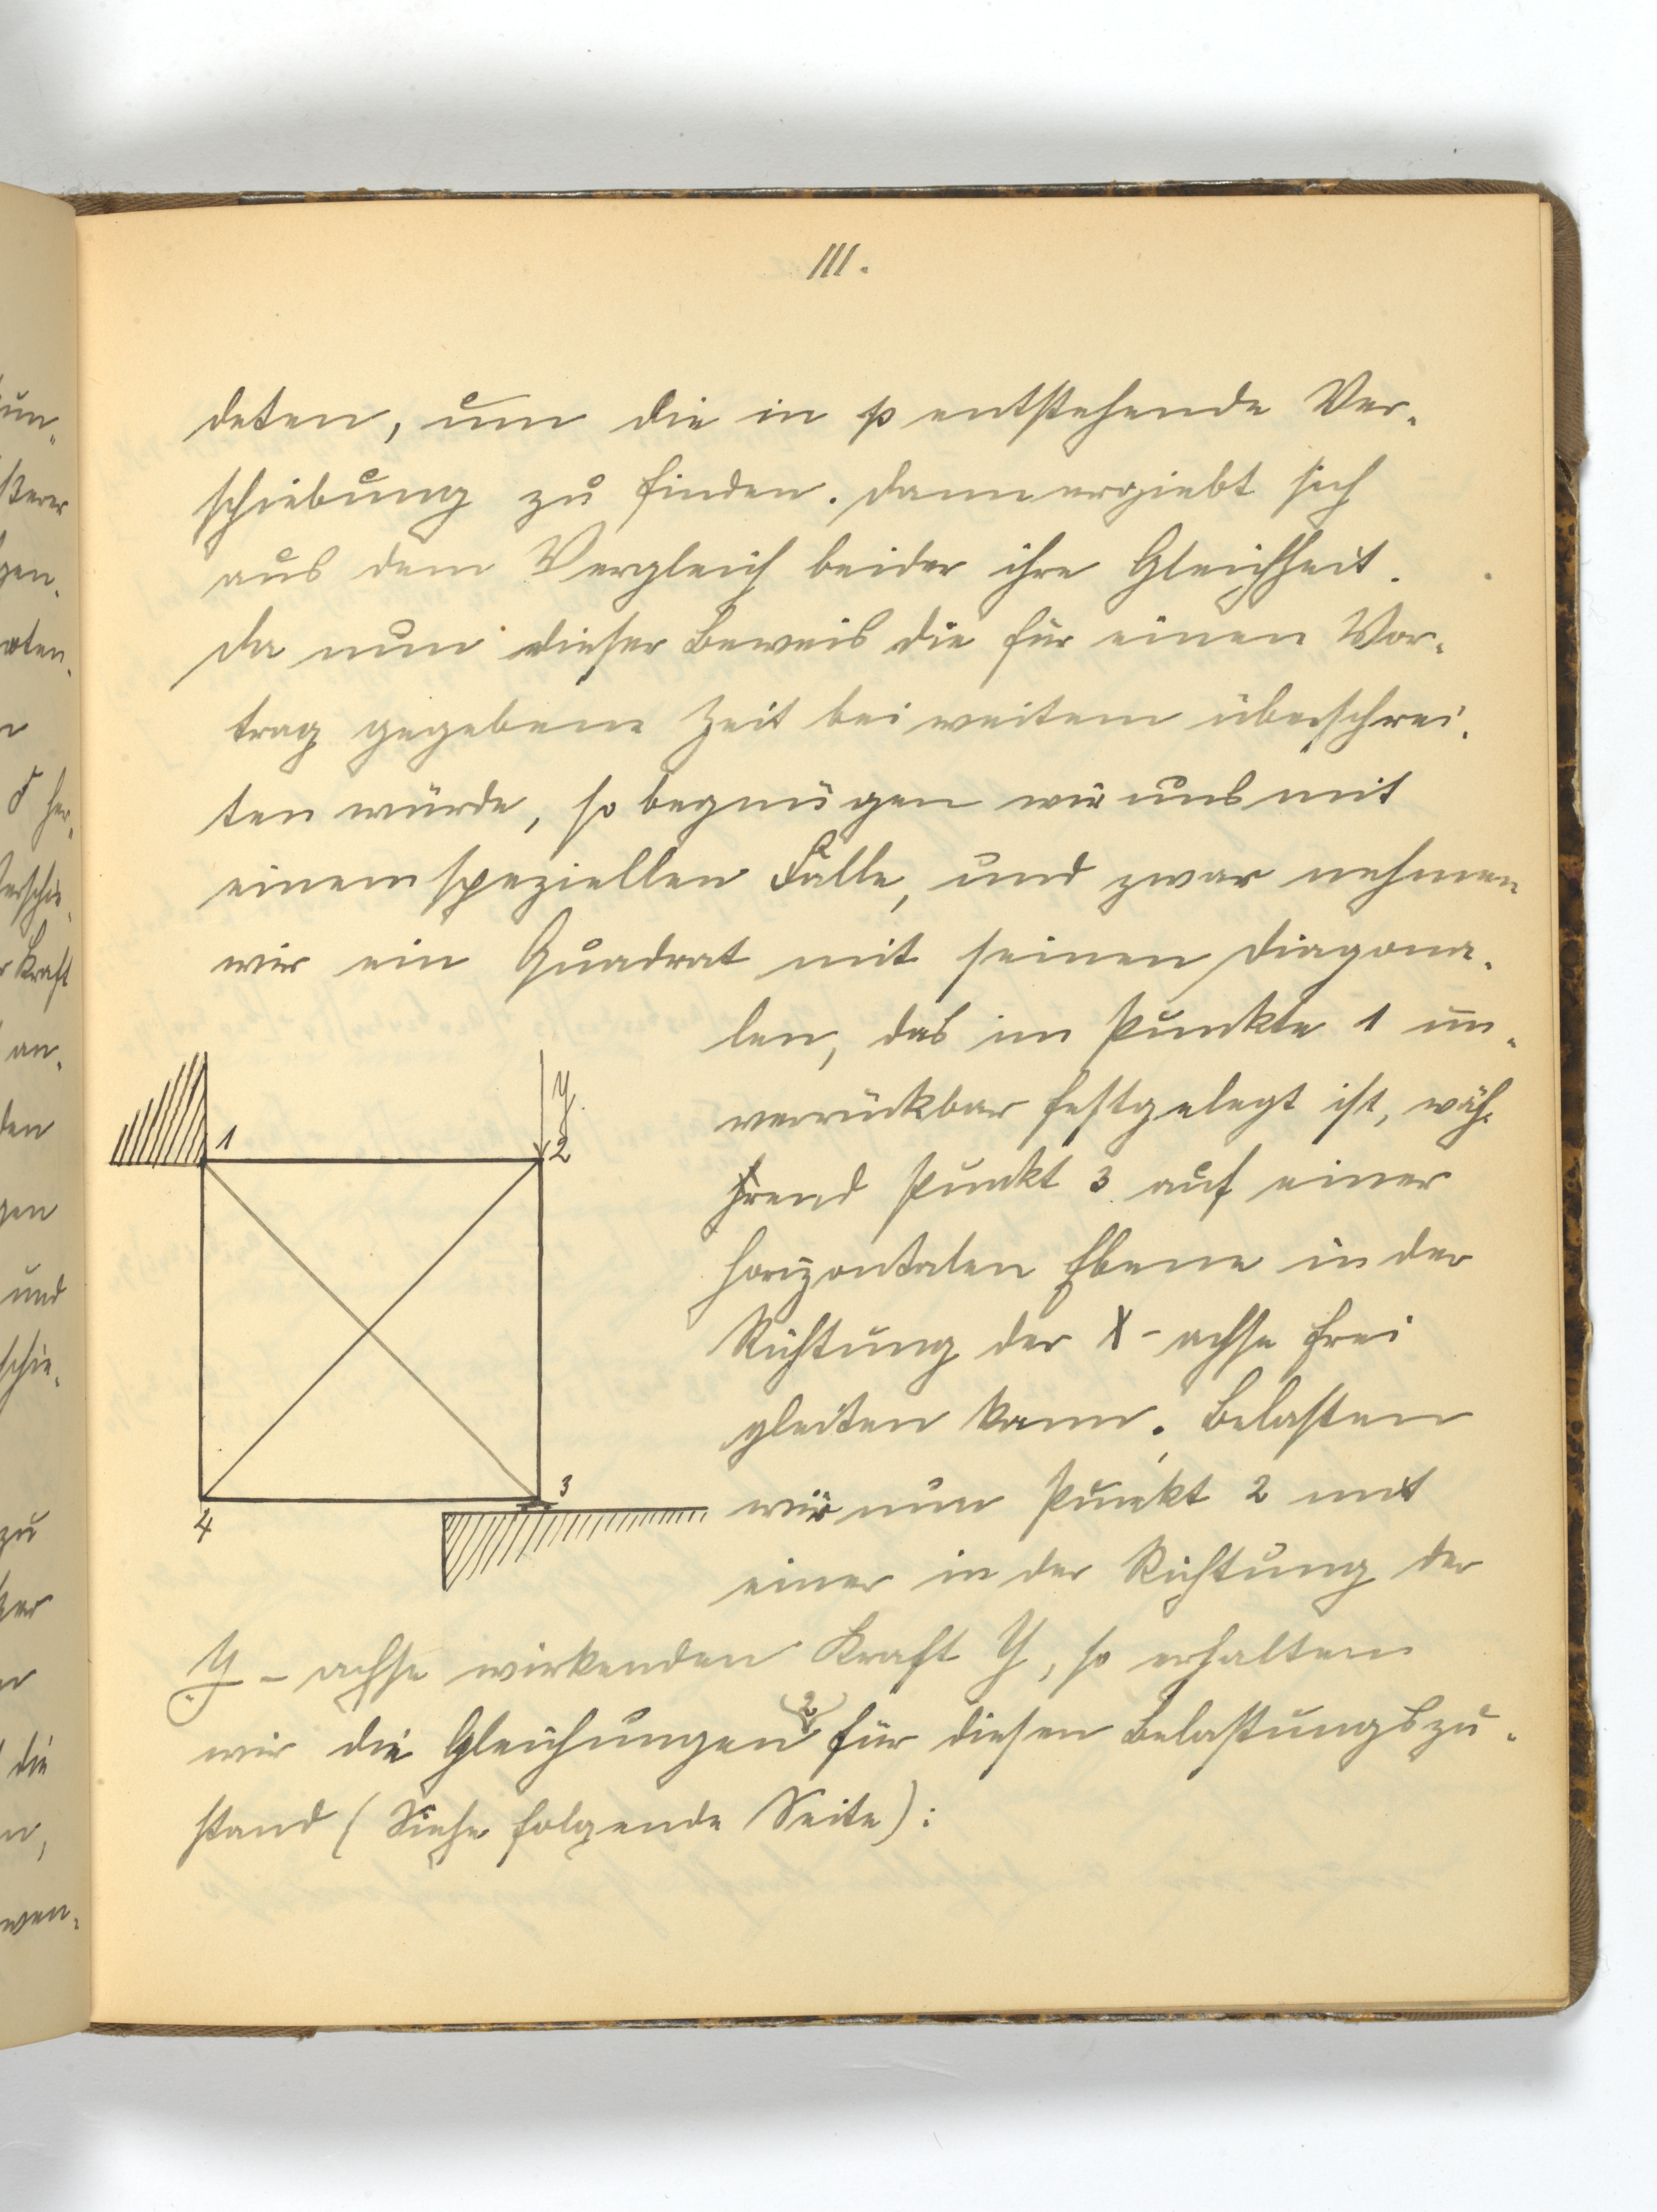 III.
deten, um die in p entstehende Ver-
schiebung zu finden. Dann ergiebt sich
aus dem Vergleich beider ihre Gleichheit.
Da nun dieser Beweis die für einen Vor-
trag gegebene Zeit bei weitem überschrei-
ten würde, so begnügen wir uns mit
einem speziellen Falle, und zwar nehmen
wir ein Quadrat mit seinen Diagona-
len, das im Punkte 1 un-
verrückbar festgelegt ist, wäh-
rend Punkt 3 auf einer
horizontalen Ebene in der
Richtung der X-achse frei
gleiten kann. Belasten
wir nun Punkt 2 mit
einer in der Richtung der
Y-achse wirkenden Kraft Y, so erhalten
wir die Gleichungen (2) für diesen Belastungszu-
stand (Siehe folgende Seite):
1
Y.
2
3
4
un-
ßerer
gen-
ten-
her-
Kraft
an-
den
gen
und
schie-
zu
die
n,
wen-